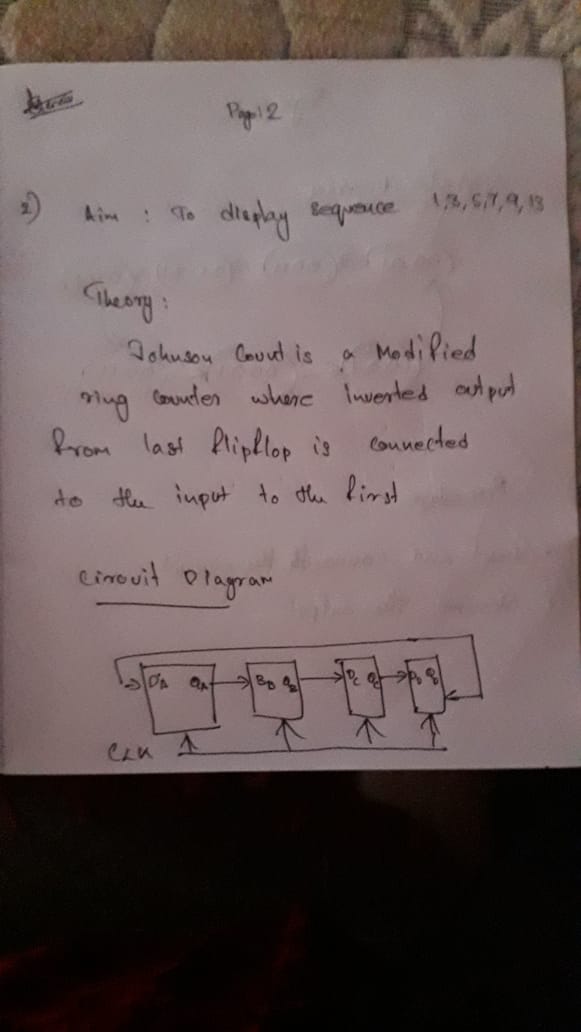 Page: 2
2) Aim : To display sequence 1,3,5,7,9,13
Theory:
Johnson Count is a Modified
ring counter where Inverted output
from last flipflop is connected
to the input to the first
Circuit Diagram
DA QA BD QB DC QC DD
CLK